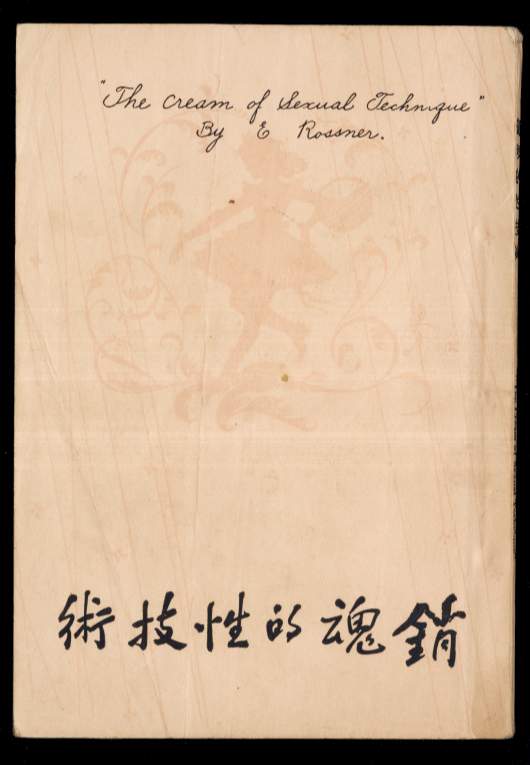 "The Cream of Sexual Technique"
By E Rossner.
銷魂的性技術